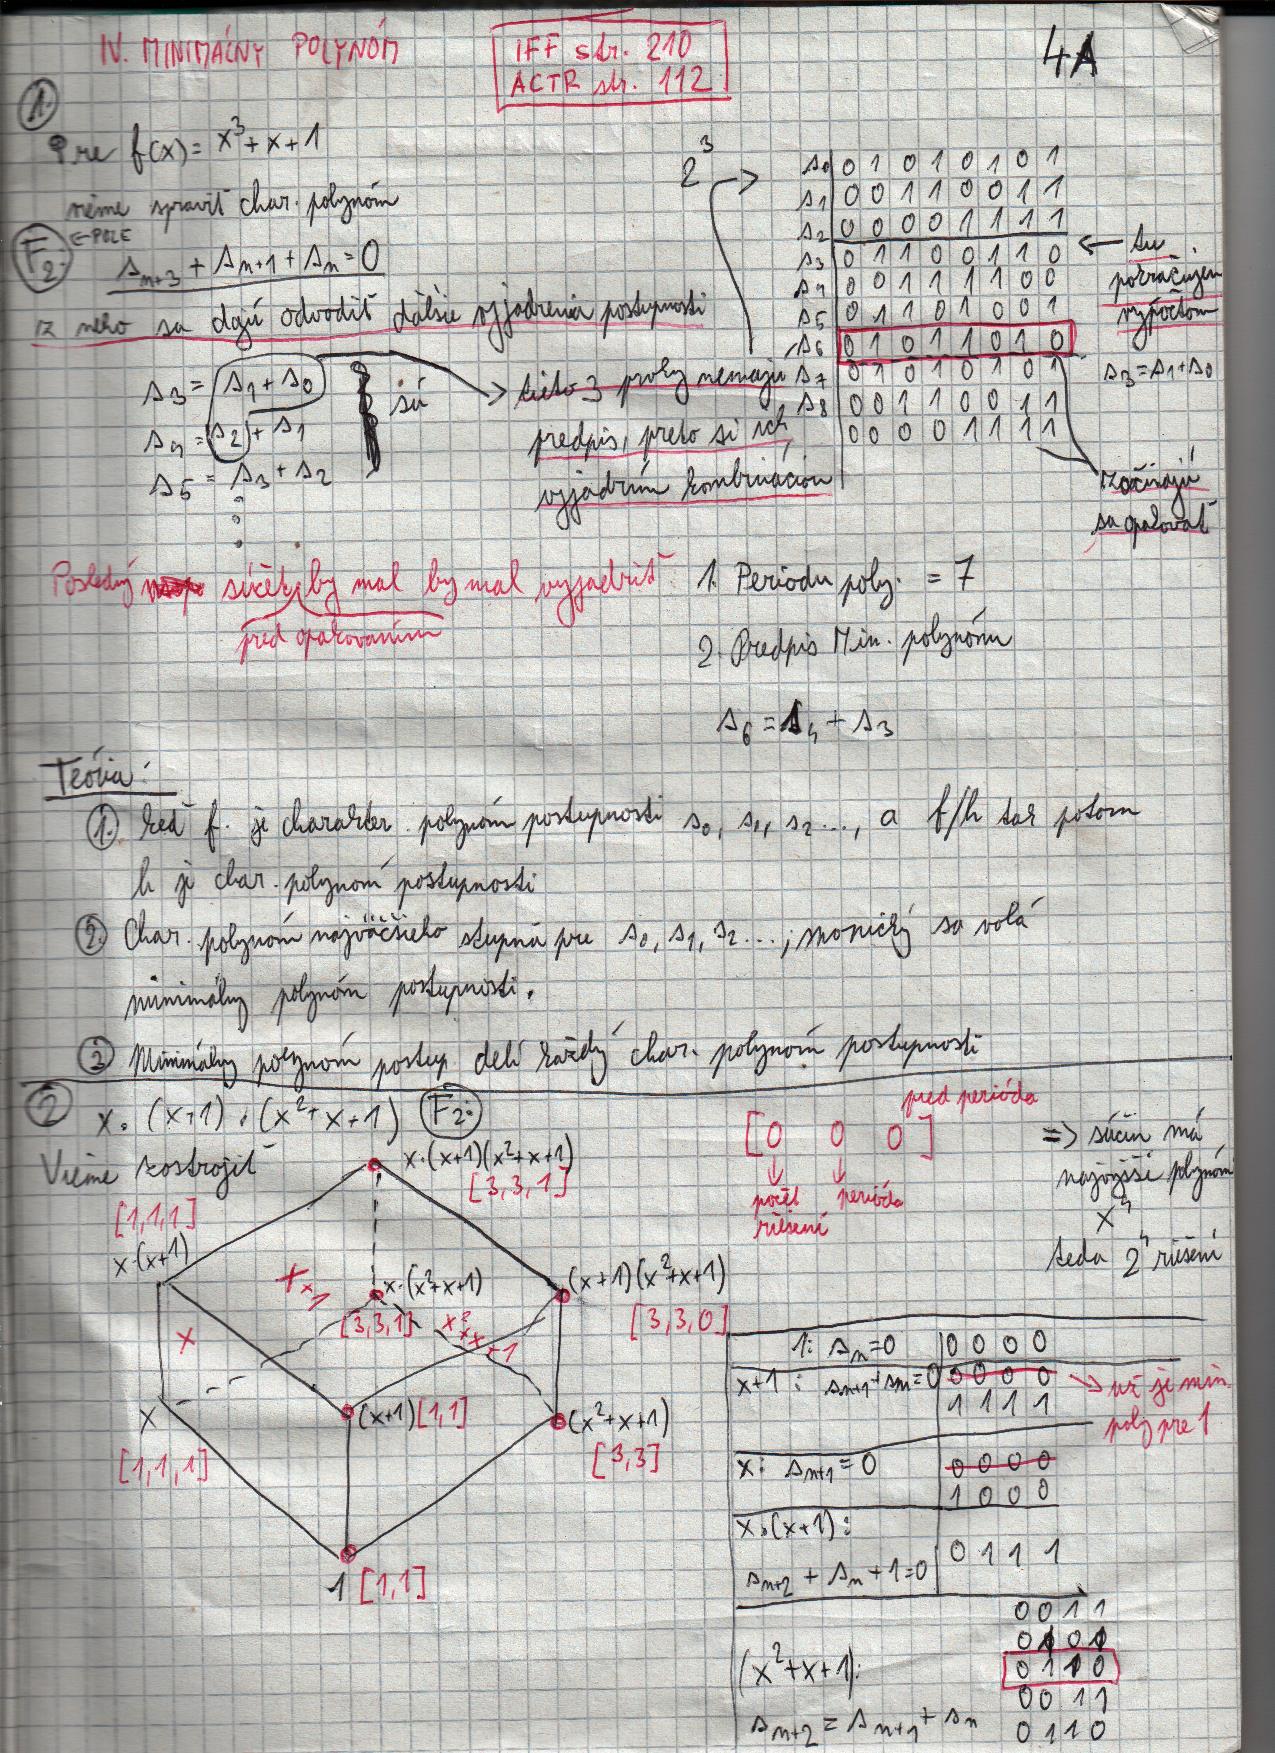 IV. MINIMÁLNY POLYNÓM
IFF str. 210
ACTR str. 112
4A
1.
Pre f(x) = x³+x+1
vieme spraviť char. polynóm
F₂: ← POLE
s_{n+3} + s_{n+1} + s_n = 0
z neho sa dajú odvodiť ďalšie vyjadrenia postupnosti
s₃ = s₁ + s₀
s₄ = s₂ + s₁
s₅ = s₃ + s₂
sú
tieto 3 prvky nemajú
predpis, preto si ich
vyjadrím kombináciou
2³
s₀ 0 1 0 1 0 1 0 1
s₁ 0 0 1 1 0 0 1 1
s₂ 0 0 0 0 1 1 1 1
s₃ 0 1 1 0 0 1 1 0
s₄ 0 0 1 1 1 1 0 0
s₅ 0 1 1 0 1 0 0 1
s₆ 0 1 0 1 1 0 1 0
s₇ 0 1 0 1 0 1 0 1
s₈ 0 0 1 1 0 0 1 1
0 0 0 0 1 1 1 1
← tu
pokračujem
výpočtom
s₃ = s₁ + s₀
začínajú
sa opakovať
Posledný súčet by mal by mal vyjadriť
pred opakovaním
1. Periodu poly. = 7
2. Predpis Min. polynómu
s₆ = s₄ + s₃
Teória:
1. keď f. je charakter. polynóm postupnosti s₀, s₁, s₂ ..., a f/h tak potom
h je char. polynom postupnosti
2. Char. polynóm najväčšieho stupňa pre s₀, s₁, s₂ ..., monický sa volá
minimálny polynóm postupnosti.
3 Minimálny polynóm postup. delí každý char. polynóm postupnosti
2 x.(x+1).(x²+x+1) F₂:
Vieme zostrojiť
x.(x+1)(x²+x+1)
[3,3,1]
[1,1,1]
x.(x+1)
x.(x²+x+1)
[3,3,1]
(x+1)(x²+x+1)
[3,3,0]
x+1
x
x²+x+1
x
[1,1,1]
(x+1) [1,1]
(x²+x+1)
[3,3]
1 [1,1]
[0 0 0]
pred perióda
počet riešení
perióda
=> súčin má
najvyšší polynóm
x⁴
teda 2⁴ riešení
1: s_n = 0 0 0 0 0
x+1: s_{n+1} + s_n = 0 0 0 0 0
1 1 1 1
→ už je min.
poly pre 1
x: s_{n+1} = 0 0 0 0 0
1 0 0 0
x.(x+1):
s_{n+2} + s_n + 1 = 0 0 1 1 1
(x²+x+1):
s_{n+2} = s_{n+1} + s_n
0 0 1 1
0 1 0 1
0 1 1 0
0 0 1 1
0 1 1 0